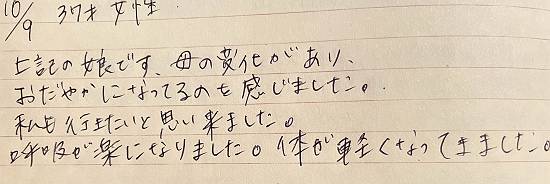 10/9 37才 女性
上記の娘です、母の変化があり、
おだやかになってるのを感じました。
私も行きたいと思い来ました。
呼吸が楽になりました。体が軽くなってきました。